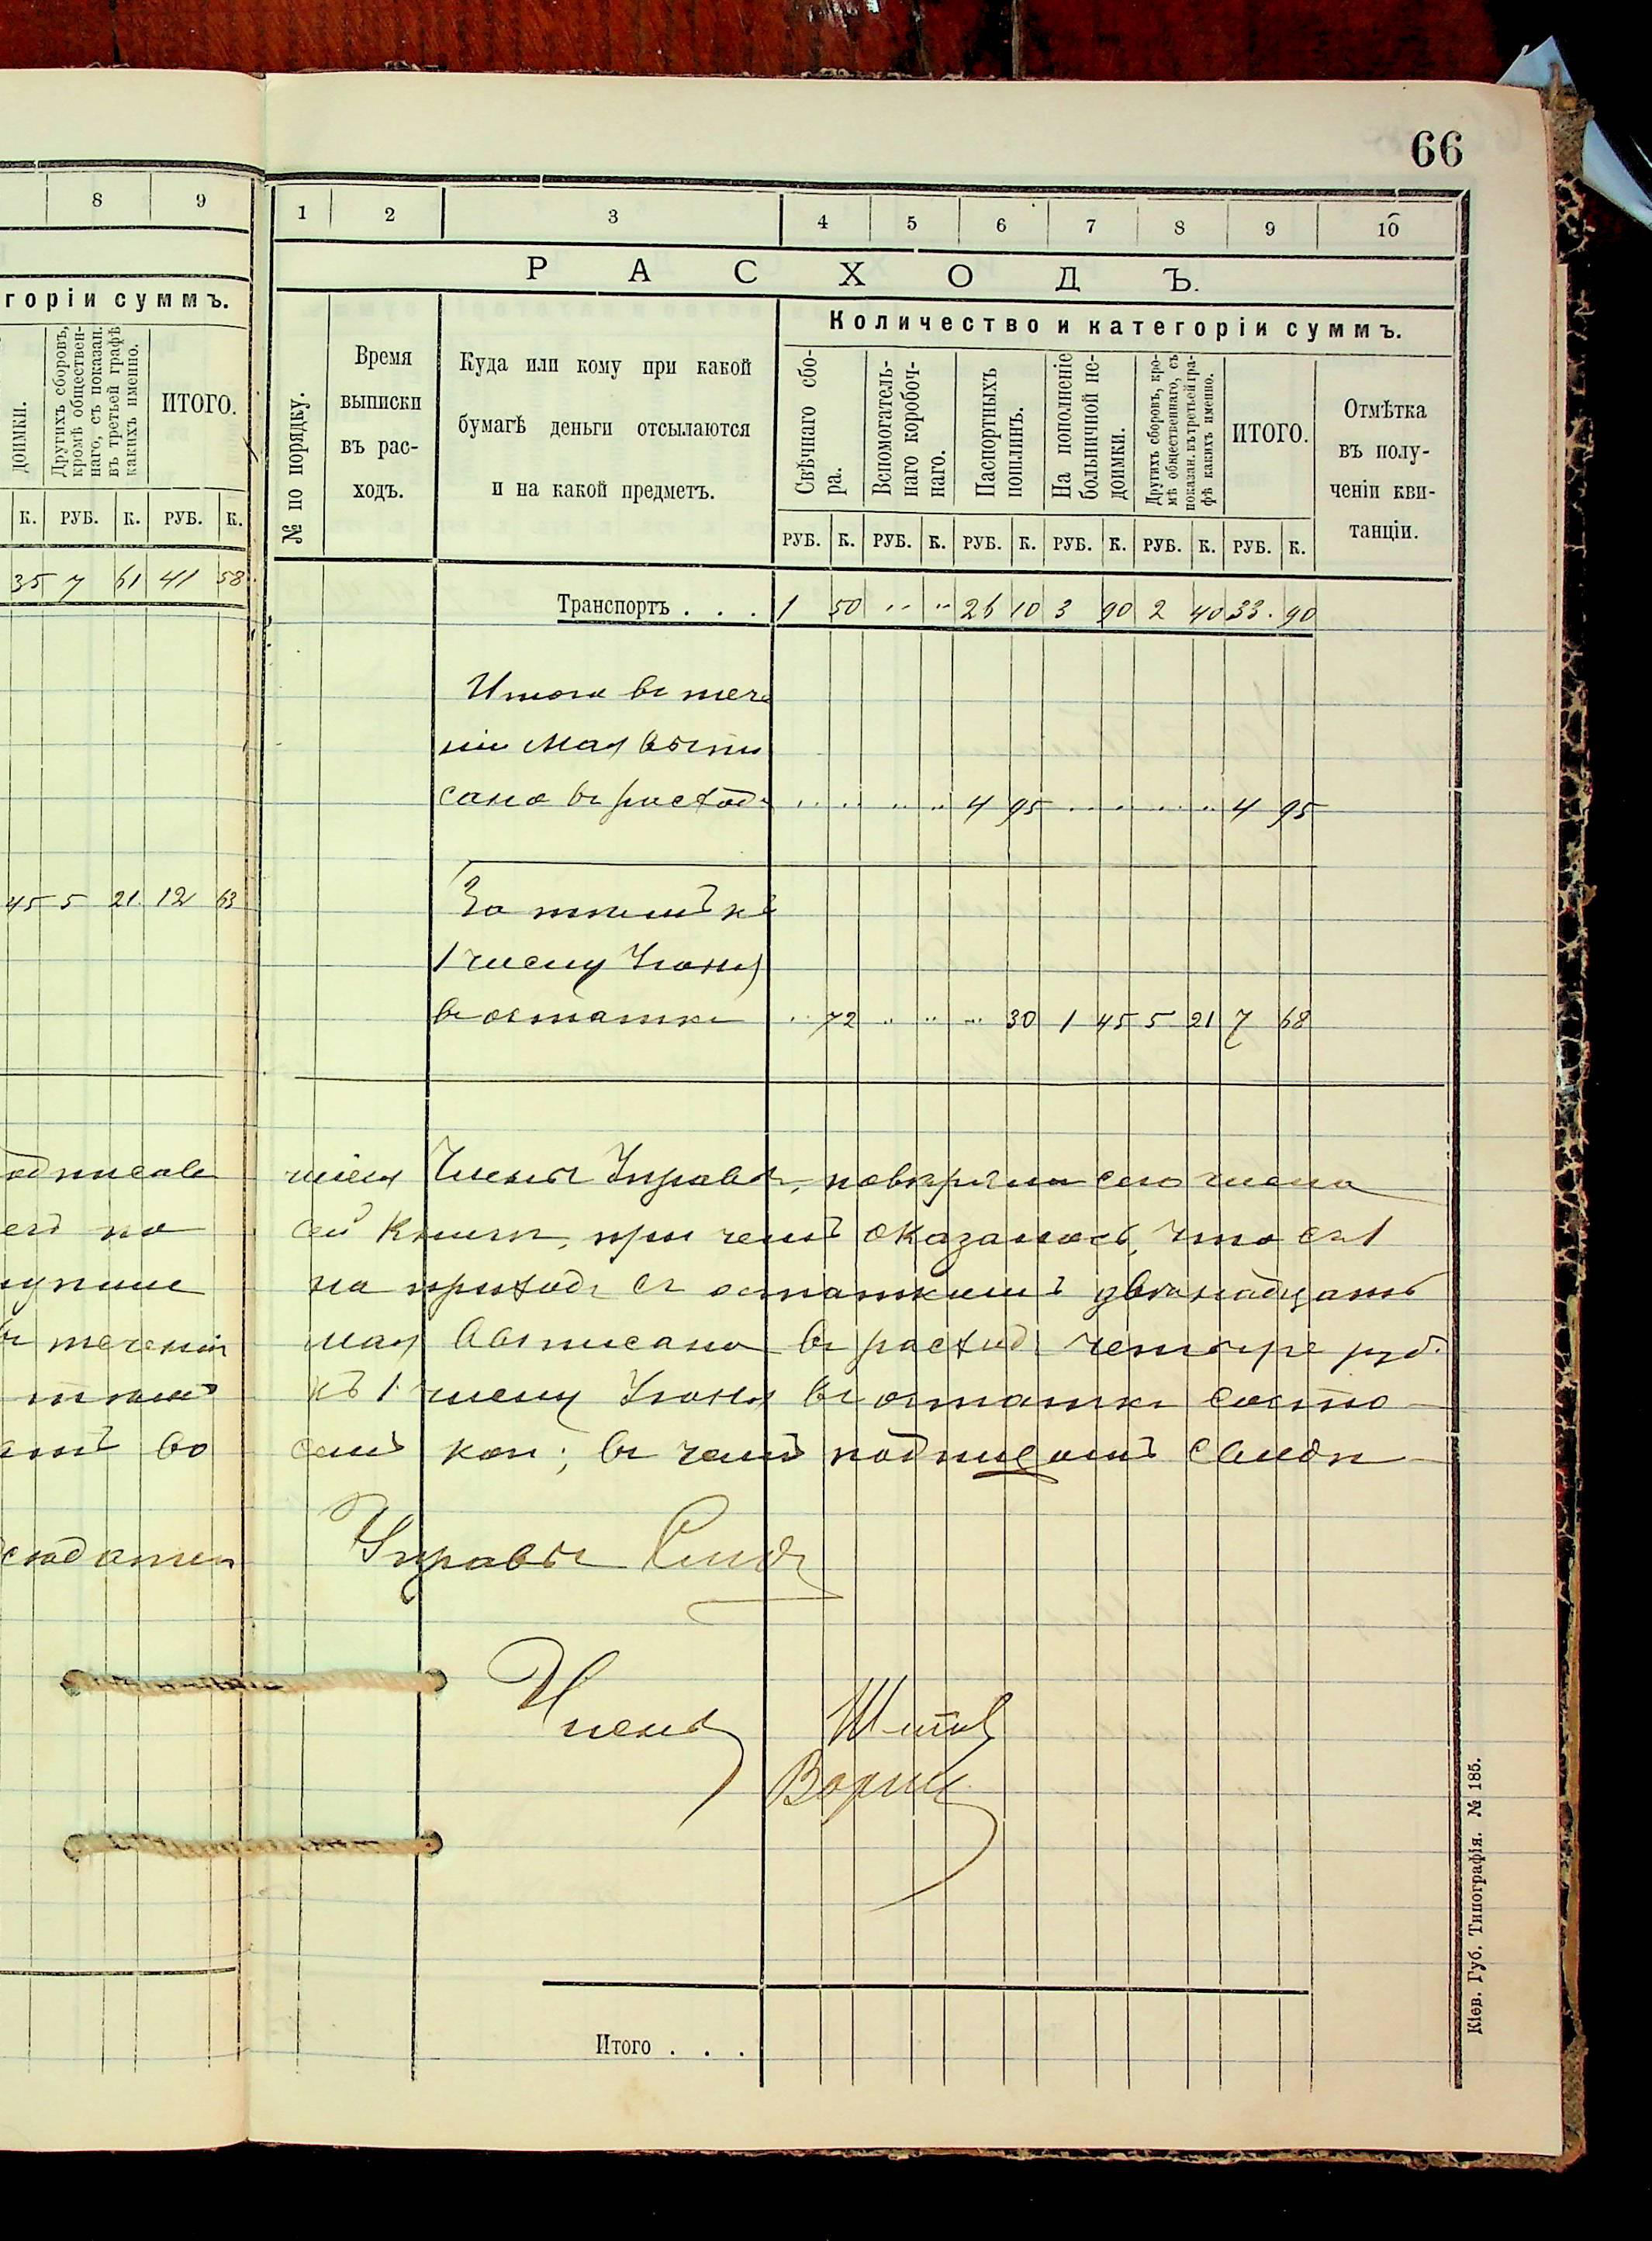 66
8 9
горіи суммъ.
доимки.
Другихъ сборовъ,
кромѣ обществен-
наго, съ показан.
въ третьей графѣ
какихъ именно.
ИТОГО.
К. РУБ. К. РУБ. К.
35 7 61 41 58
45 5 21 12 63
1 2 3 4 5 6 7 8 9 10
РАСХОДЪ.
№ по порядку.
Время
выписки
въ рас-
ходъ.
Куда или кому при какой
бумагѣ деньги отсылаются
и на какой предметъ.
Количество и категоріи суммъ.
Свѣчнаго сбо-
ра.
Вспомогатель-
наго коробоч-
наго.
Паспортныхъ
пошлинъ.
На пополненіе
больничной не-
доимки.
Другихъ сборовъ, кро-
мѣ общественнаго, съ
показан. въ третьей гра-
фѣ какихъ именно.
ИТОГО.
Отмѣтка
въ полу-
ченіи кви-
танціи.
РУБ. К. РУБ. К. РУБ. К. РУБ. К. РУБ. К. РУБ. К.
Транспортъ . . . 1 50 " " 26 10 3 90 2 40 33. 90
Итого въ тече
ніи Мая выпи
сано въ расходъ 4 95 4 95
За тѣмъ къ
1 числу Іюня
въ остаткѣ 72 30 1 45 5 21 7 68
Члены Управы, повѣряли сего числа
сей книги, при чемъ оказалось, что съ 1
на приходъ съ остаткомъ двѣнадцать
мая выписано въ расходъ четыре руб.
въ теченіи
къ 1 числу Іюня въ остаткѣ состо
во
семь коп; въ чемъ подписомъ свидѣ
Управы
Члены
Итого . . .
Кіев. Губ. Типографія. № 185.